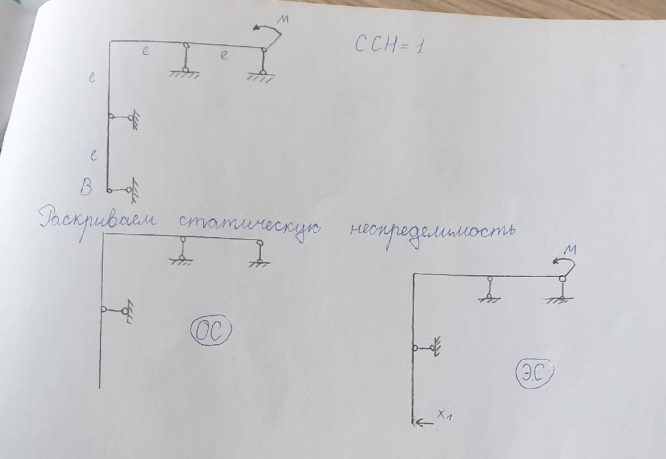 M
ССН = 1
e
e
e
e
B
Раскриваем статическую неопределимость
M
ОС
ЭС
X1